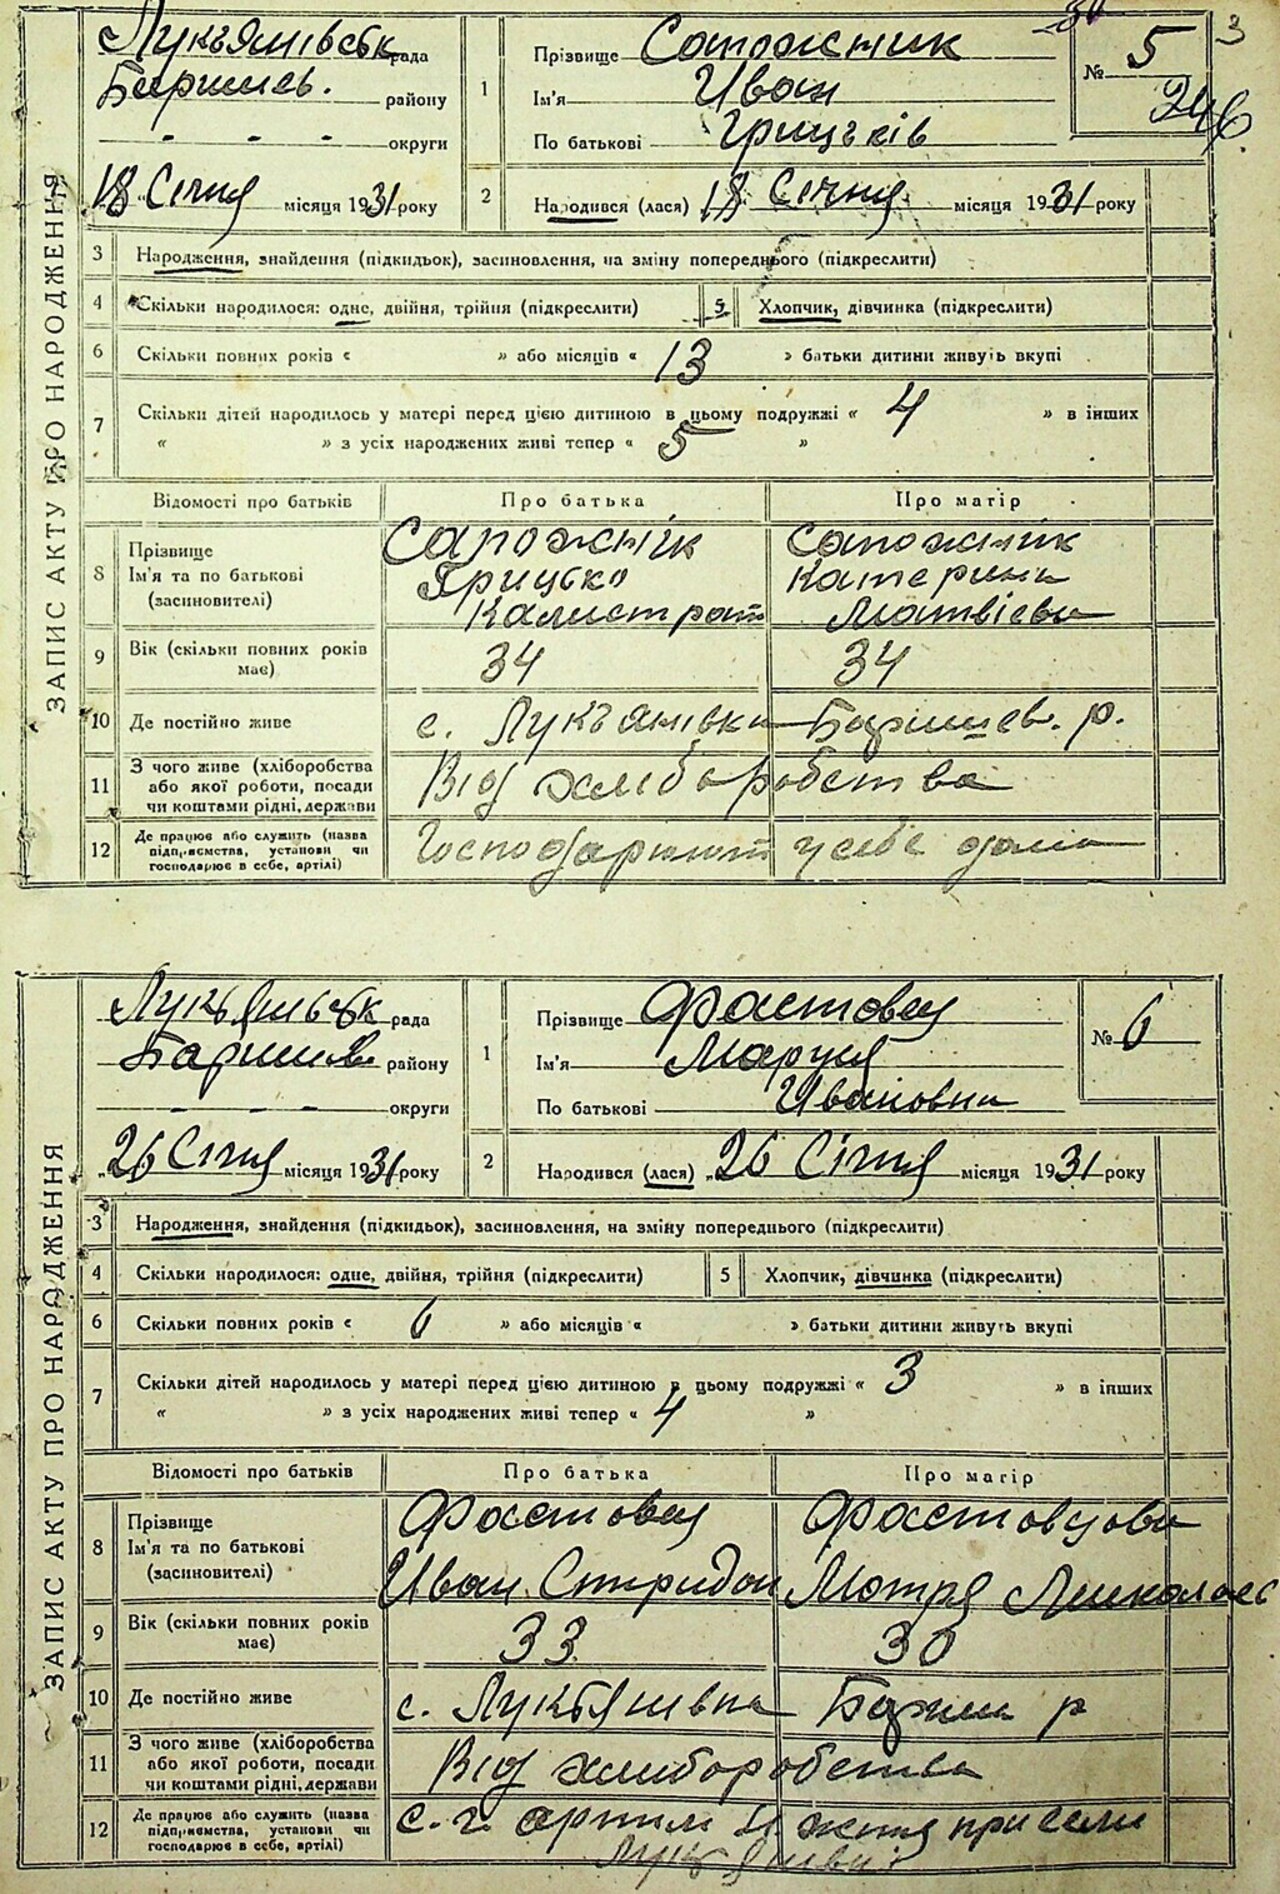 3
Лукъянівськ рада
Баришев. району
- - - - округи
18 Січня місяця 1931 року
1
Прізвище Сапожник
Ім'я Иван
По батькові Грицьків
№ 5
246
2
Народився (лася) 18 Січня місяця 1931 року
ЗАПИС АКТУ ПРО НАРОДЖЕННЯ
3 Народження, знайдення (підкидьок), засиновлення, на зміну попереднього (підкреслити)
4 Скільки народилося: одне, двійня, трійня (підкреслити) 5 Хлопчик, дівчинка (підкреслити)
6 Скільки повних років « » або місяців « 13 » батьки дитини живуть вкупі
7 Скільки дітей народилось у матері перед цією дитиною в цьому подружжі « 4 » в інших
« » з усіх народжених живі тепер « 5 »
Відомості про батьків Про батька Про матір
8 Прізвище Сапожнік Сапожнік
Ім'я та по батькові Грицько Катерина
(засиновителі) Калистрат Матвієва
9 Вік (скільки повних років має) 34 34
10 Де постійно живе с. Лукъянівка Баришев. р.
11 З чого живе (хліборобства або якої роботи, посади чи коштами рідні, держави Від хліборобства
12 Де працює або служить (назва підприємства, установи чи господарює в себе, артілі) Господарюют у себе дома
Лукъянівськ рада
Баришів району
- - - округи
26 Січня місяця 1931 року
1
Прізвище Фастовец
Ім'я Маруся
По батькові Ивановна
№ 6
2
Народився (лася) „26 Січня місяця 1931 року
ЗАПИС АКТУ ПРО НАРОДЖЕННЯ
3 Народження, знайдення (підкидьок), засиновлення, на зміну попереднього (підкреслити)
4 Скільки народилося: одне, двійня, трійня (підкреслити) 5 Хлопчик, дівчинка (підкреслити)
6 Скільки повних років « 6 » або місяців « » батьки дитини живуть вкупі
7 Скільки дітей народилось у матері перед цією дитиною в цьому подружжі « 3 » в інших
« » з усіх народжених живі тепер « 4 »
Відомості про батьків Про батька Про матір
8 Прізвище Фастовец Фастовцова
Ім'я та по батькові
(засиновителі) Иван Спиридон Мотря Миколаєв
9 Вік (скільки повних років має) 33 30
10 Де постійно живе с. Лукъянівка Бариш р
11 З чого живе (хліборобства або якої роботи, посади чи коштами рідні, держави Від хліборобства
12 Де працює або служить (назва підприємства, установи чи господарює в себе, артілі) с. г. артіли при селі